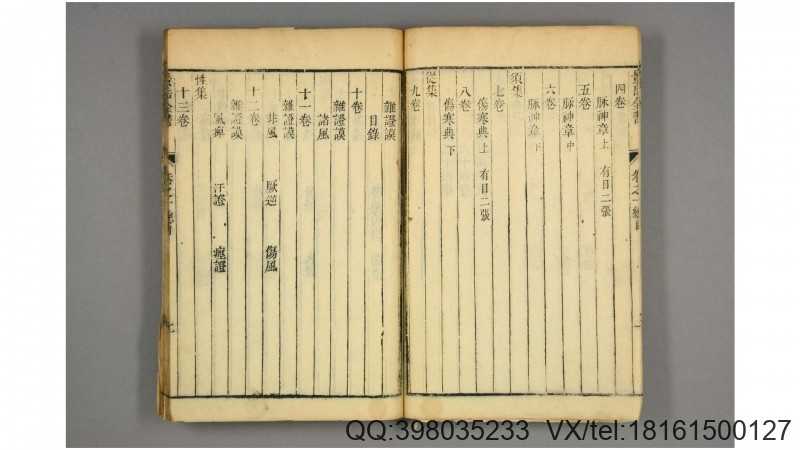 景岳全書
四卷
脉神章上 有目二張
五卷
脉神章中
六卷
脉神章下
須集
七卷
傷寒典上 有目二張
八卷
傷寒典下
從集
九卷
雜證謨
目錄
十卷
雜證謨
諸風
十一卷
雜證謨
非風 厥逆 傷風
十二卷
雜證謨
風痺 汗證 痙證
性集
十三卷
景岳全書
QQ:398035233 VX/tel:18161500127